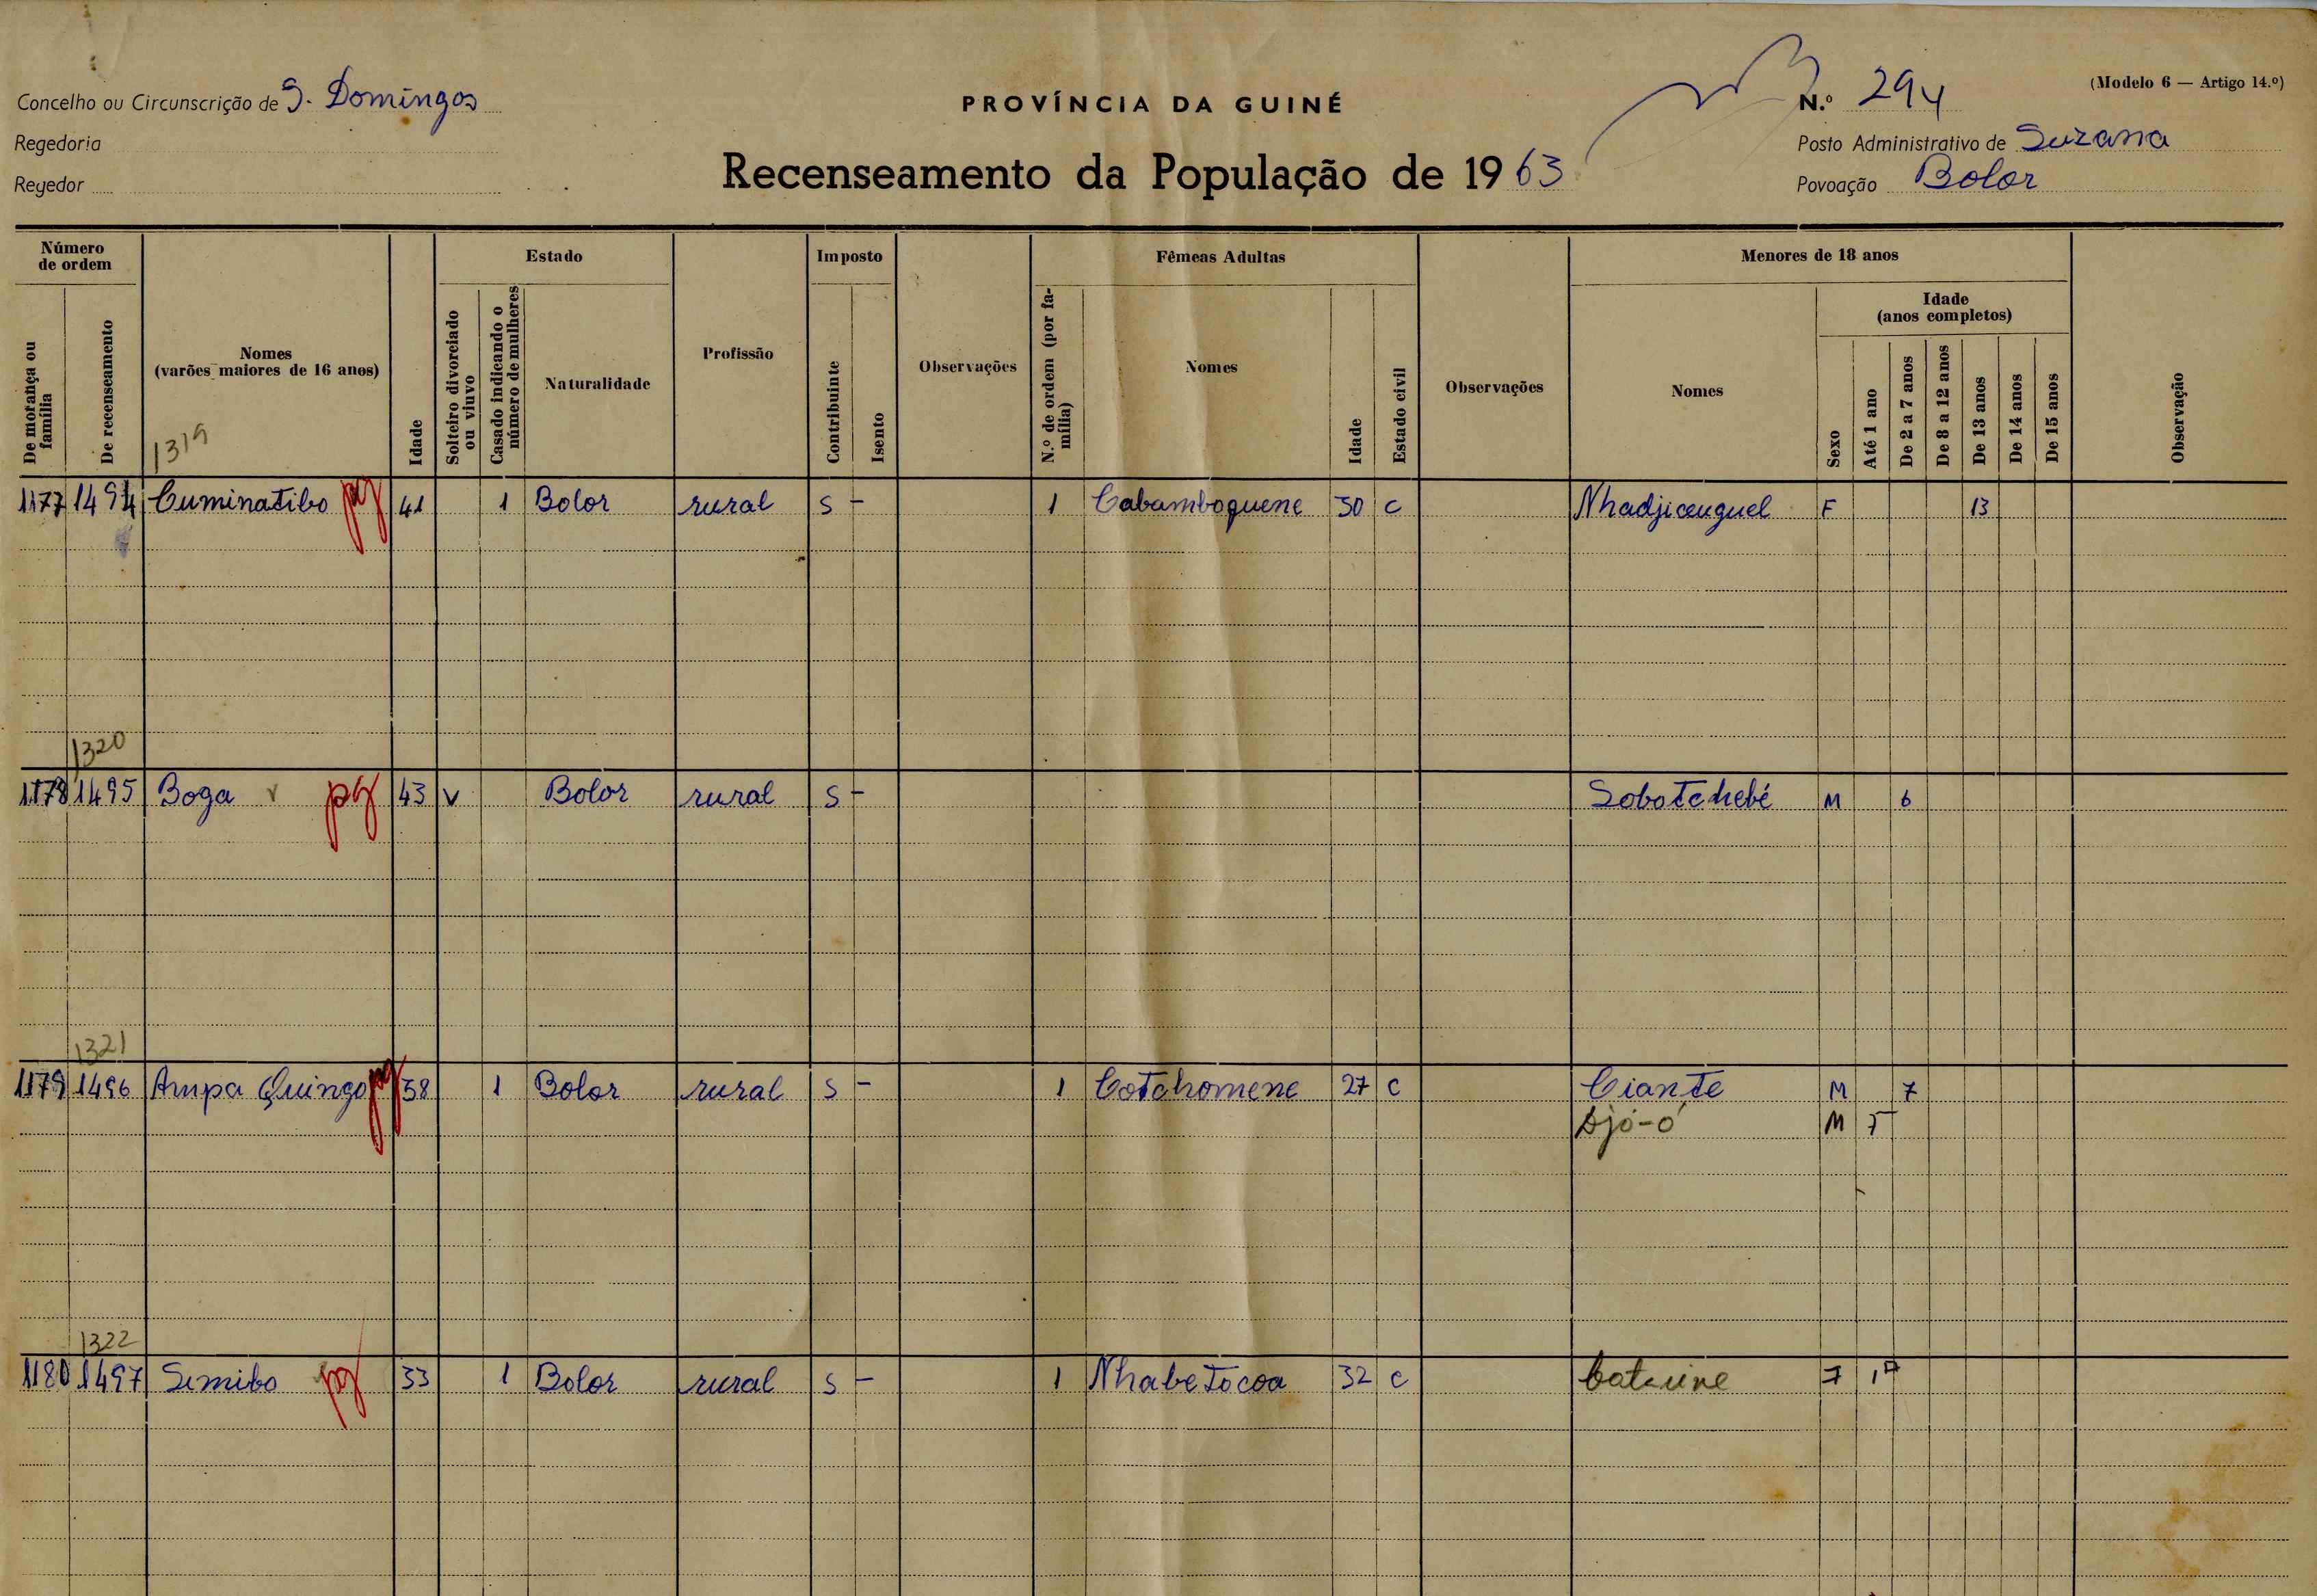 Concelho ou Circunscrição de S. Domingos
Regedoria
Regedor
PROVÍNCIA DA GUINÉ
Recenseamento da População de 1963
(Modelo 6 — Artigo 14.º)
N.º 294
Posto Administrativo de Suzana
Povoação Bolor
Número de ordem
De morança ou família
De recenseamento
Nomes
(varões maiores de 16 anos)
1319
Idade
Estado
Solteiro divorciado ou viuvo
Casado indicando o número de mulheres
Naturalidade
Profissão
Imposto
Contribuinte
Isento
Observações
Fêmeas Adultas
N.º de ordem (por família)
Nomes
Idade
Estado civil
Observações
Menores de 18 anos
Nomes
Sexo
Idade
(anos completos)
Até 1 ano
De 2 a 7 anos
De 8 a 12 anos
De 13 anos
De 14 anos
De 15 anos
Observação
1177 1494 Cuminatibo pg 41 1 Bolor rural S - 1 Cabamboquene 30 C Nhadjicenguel F 13
1320
1178 1495 Boga v pg 43 V Bolor rural S - Sobotchebé M 6
1321
1179 1496 Ampa Quingo pg 58 1 Bolor rural S - 1 Cotchomene 27 C Ciante M 7
Djó-ó M
1322
1180 1497 Semibo pg 33 1 Bolor rural S - 1 Nhabetocoa 32 C